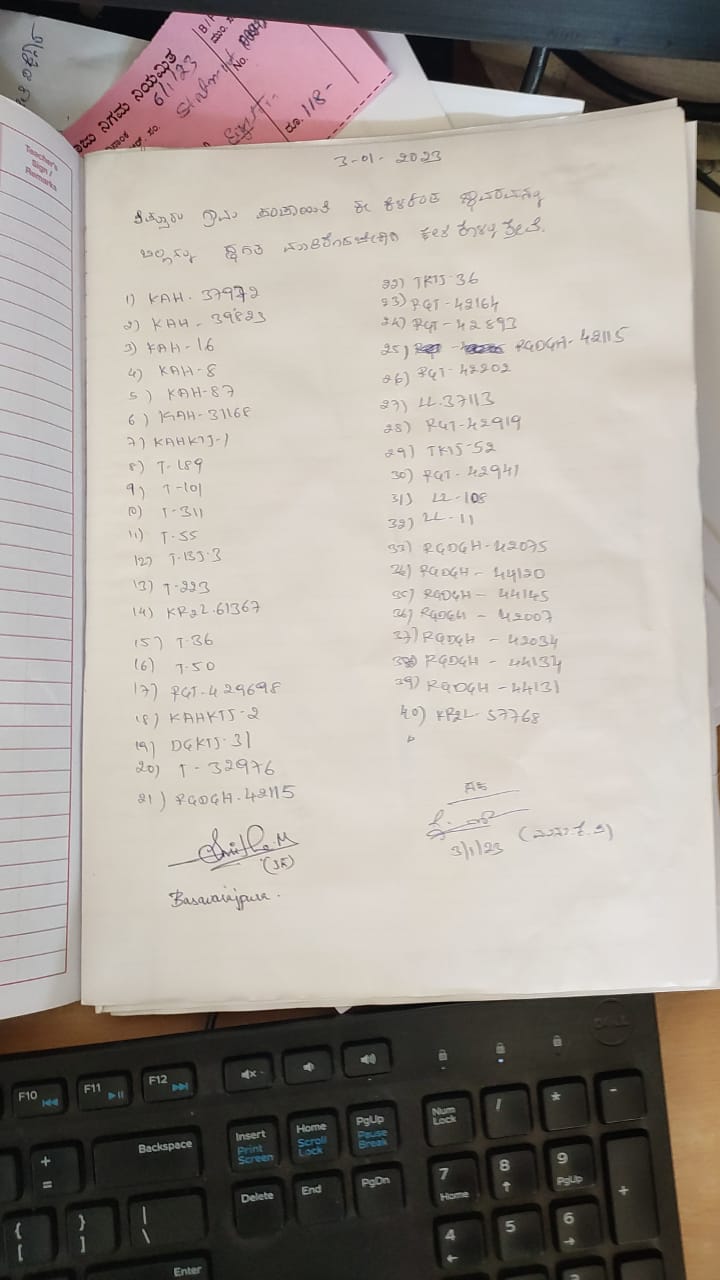 ನಿಗಮ ನಿಯಮಿತ
6/1/23
Statement
No.
ರೂ. 118-
Teacher's
Sign /
Remarks
3-01-2023
ಗ್ರಾಮ ಪಂಚಾಯಿತಿ ಈ ಕೆಳಕಂಡ ಸ್ಥಾವರವನ್ನು
1) KAH. 37972
2) KAH - 39823
3) KAH-16
4) KAH-8
5) KAH-87
6) KAH-31168
7) KAHKTJ-1
8) T-189
9) T-101
10) T-311
11) T-55
12) T-135.3
13) T-223
14) KR2L.61367
15) T-36
16) T-50
17) RGT-429698
18) KAHKTJ-2
19) DGKTJ-31
20) T-32976
21) RGDGH.42115
22) TKTJ-36
23) RGT-42164
24) RGT-42893
25) RGDGH-42115
26) RGT-42202
27) LL.37113
28) RGT-42919
29) TKTJ-52
30) RGT-42941
31) LL-108
32) LL-11
33) RGDGH-42075
34) RGDGH-44120
35) RGDGH-44145
36) RGDGH-42007
37) RGDGH-42034
38) RGDGH-44134
39) RGDGH-44131
40) KR2L-57768
(JE)
Basavarajpura.
AE
3/1/23
DELL
F10
F11
F12
Backspace
Insert
Print
Screen
Home
Scroll
Lock
PgUp
Pause
Break
Delete
End
PgDn
Num
Lock
/
*
-
7
Home
8
9
PgUp
+
4
5
6
+
=
{
[
}
]
|
\
Enter